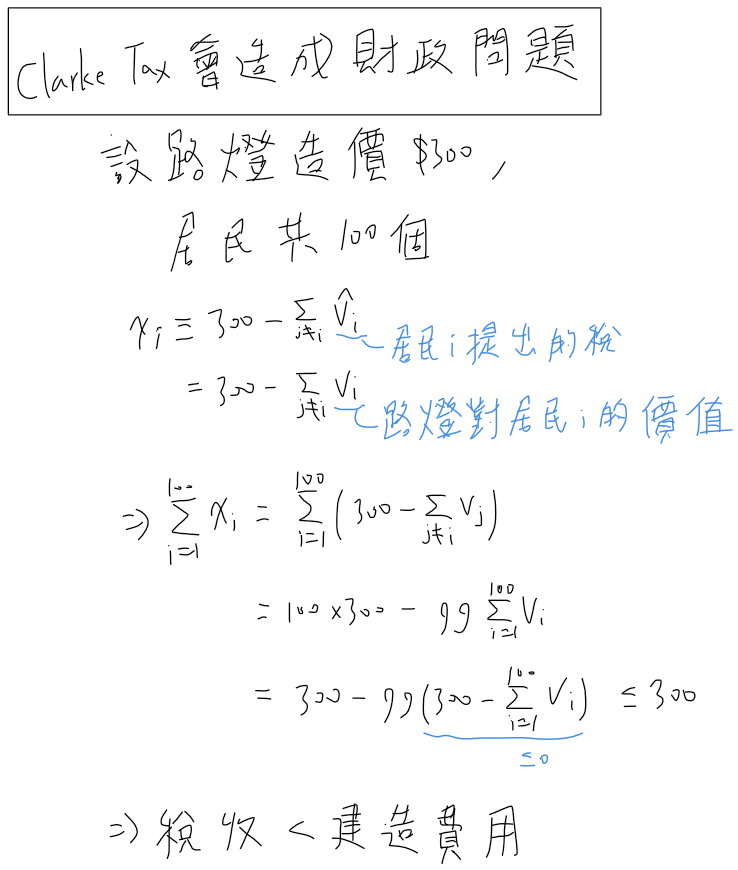 Clarke Tax 會造成財政問題
設路燈造價 $300,
居民共 100 個
x_i ≡ 300 - Σ_{j≠i} V̂_i
居民 i 提出的稅
= 300 - Σ_{j≠i} V_i
路燈對居民 i 的價值
⇒ Σ_{i=1}^{100} x_i = Σ_{i=1}^{100} (300 - Σ_{j≠i} V_j)
= 100 × 300 - 99 Σ_{i=1}^{100} V_i
= 300 - 99 (300 - Σ_{i=1}^{100} V_i) ≤ 300
≤ 0
⇒ 稅收 < 建造費用